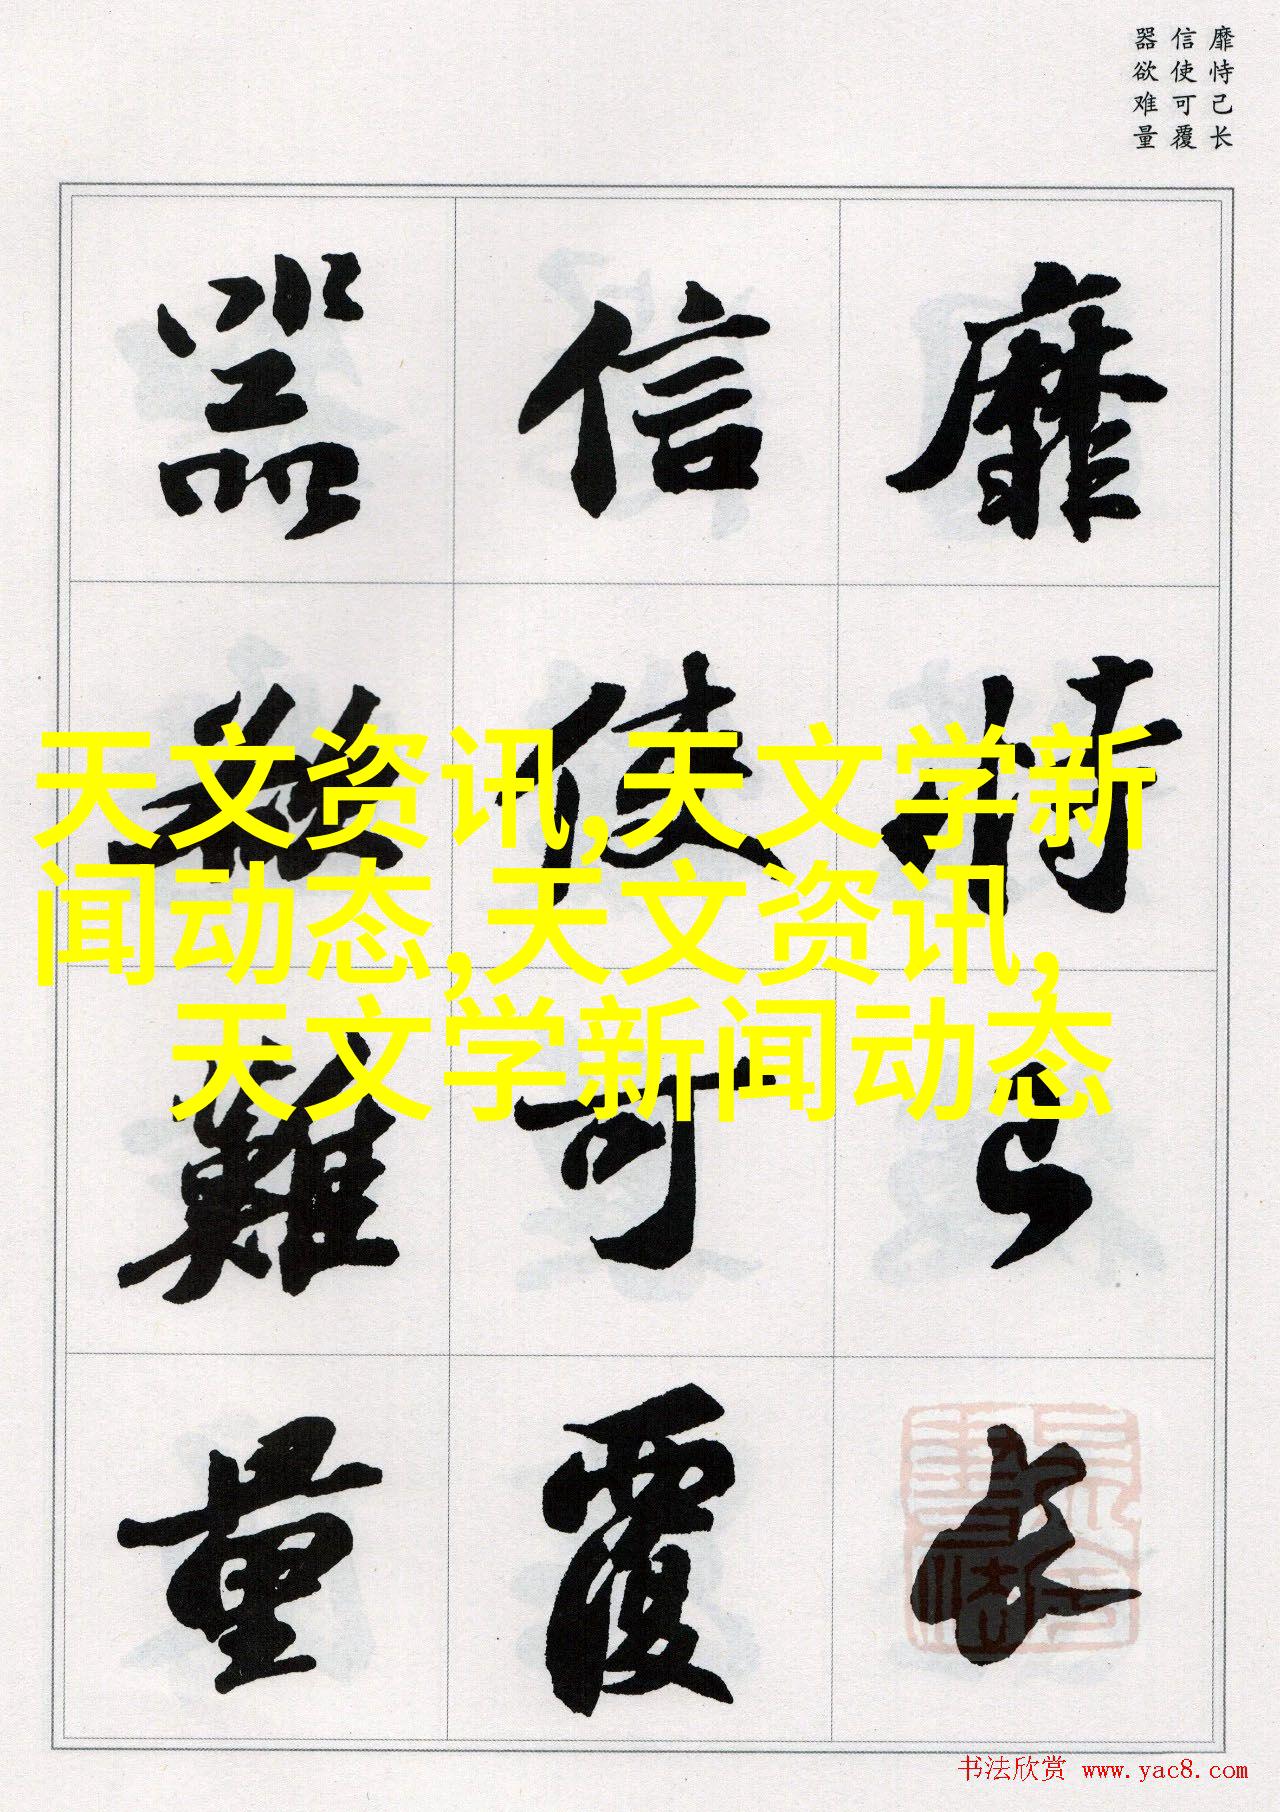 靡恃己长
信使可覆
器欲难量
靡恃己长
信使可覆
器欲難量
天文资讯,天文学新
闻动态,天文资讯,
天文学新闻动态
书法欣赏 www.yac8.com